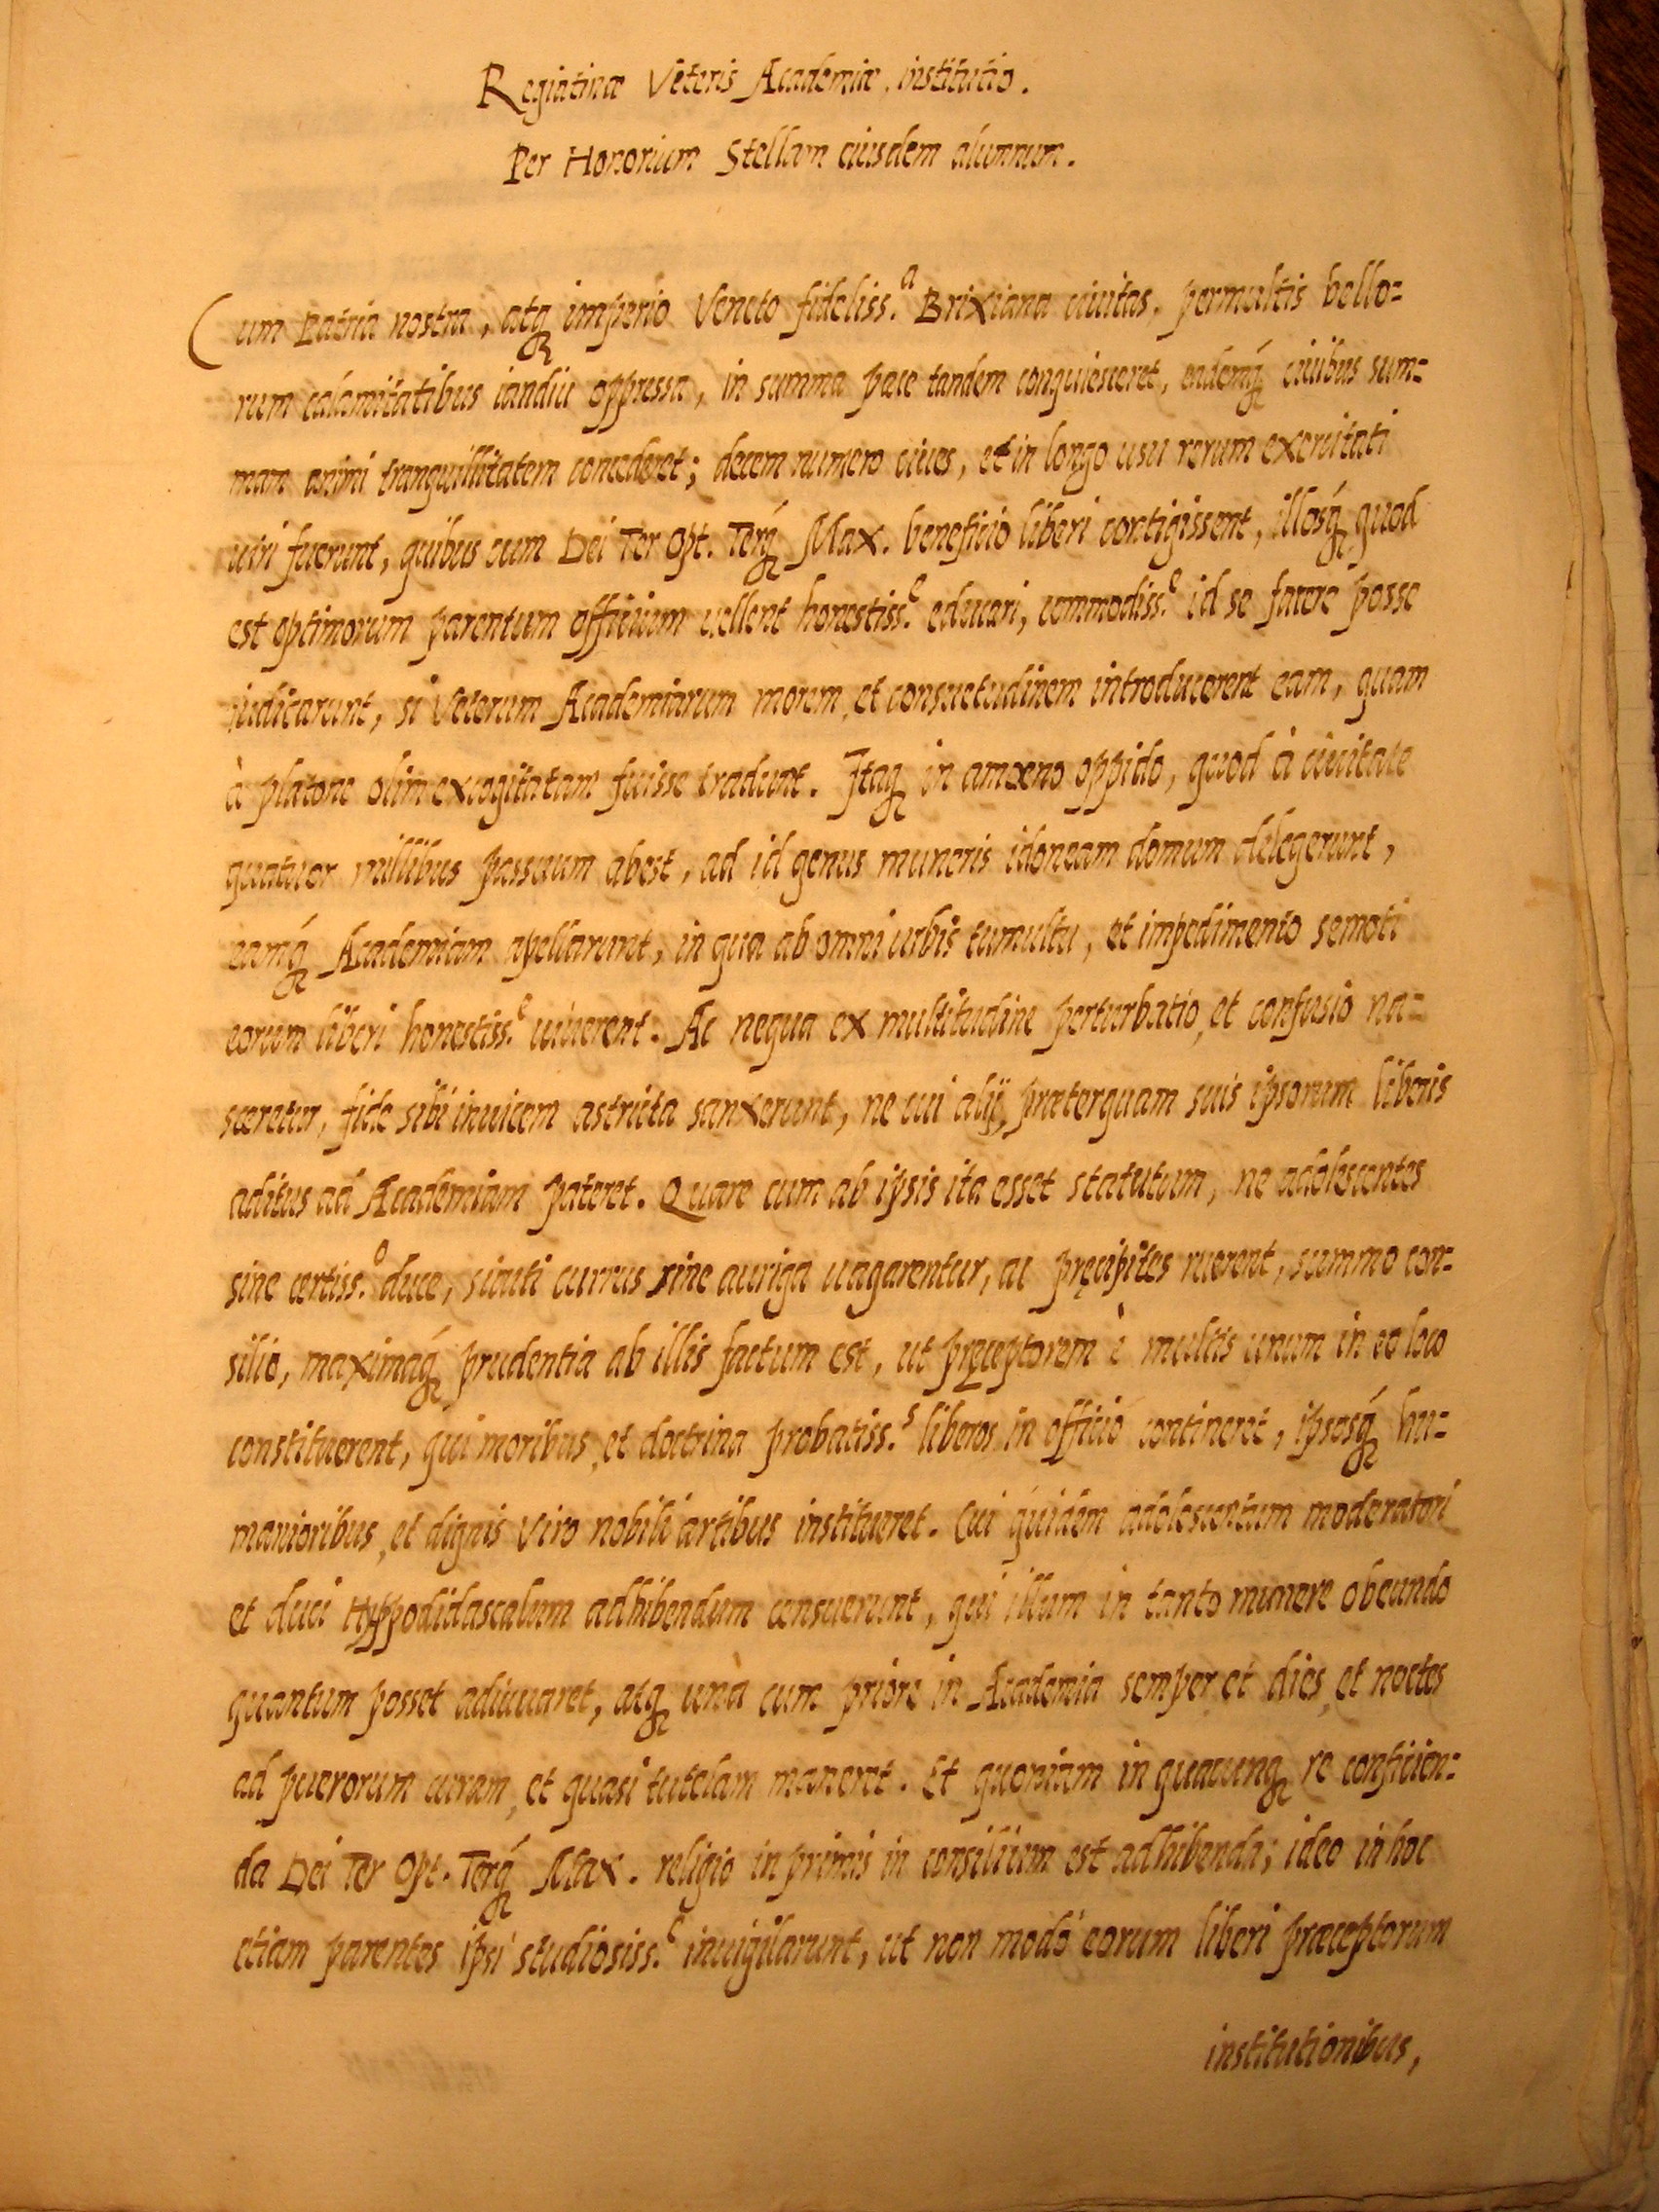 Regiatinæ Veteris Academiæ institutio.
Per Honorium Stellam eiusdem alumnum.
Cum Patria nostra, atq imperio Veneto fideliss.a Brixiana ciuitas, permultis bello=
rum calamitatibus iandiu oppressa, in summa pace tandem conquiesceret, eademq́ ciuibus sum=
mam animi tranquillitatem concederet; decem numero ciues, et in longo usu rerum exercitati
uiri fuerunt, quibus cum Dei Ter Opt. Terq́ Max. beneficio liberi contigissent, illosq́ quod
est optimorum parentum officium uellent honestiss.e educari, commodiss.e id se facere posse
iudicarunt, si Veterum Academiarum morem, et consuetudinem introducerent eam, quam
à platone olim excogitatam fuisse tradunt. Itaq in amœno oppido, quod à ciuitate
quatuor millibus passuum abest, ad id genus muneris idoneam domum delegerunt,
eamq́ Academiam apellarunt, in qua ab omni urbis tumultu, et impedimento semoti
eorum liberi honestiss.e uiuerent. Ac nequa ex multitudine perturbatio, et confusio na=
sceretur, fide sibi inuicem astricta sanxerunt, ne cui alij, præterquam suis ipsorum liberis
aditus ad Academiam pateret. Quare cum ab ipsis ita esset statutum, ne adolescentes
sine certiss.o duce, sicuti currus sine auriga uagarentur, ac pręcipites ruerent, summo con=
silio, maximaq́ prudentia ab illis factum est, ut pręceptorem è multis unum in eo loco
constituerent, qui moribus, et doctrina probatiss.s liberos in officio contineret, ipsosq́ hu=
manioribus, et dignis Viro nobili artibus institueret. Cui quidem adolescentum moderatori
et duci Hyppodidascalum adhibendum censuerunt, qui illum in tanto munere obeundo
quantum posset adiuuaret, atq unà cum priore in Academia semper et dies, et noctes
ad puerorum curam, et quasi tutelam maneret. Et quoniam in quacunq re conficien=
da Dei Ter Opt. Terq́ Max. religio in primis in consilium est adhibenda; ideo in hoc
etiam parentes ipsi studiosiss.e inuigilarunt, ut non modo eorum liberi præceptorum
institutionibus,